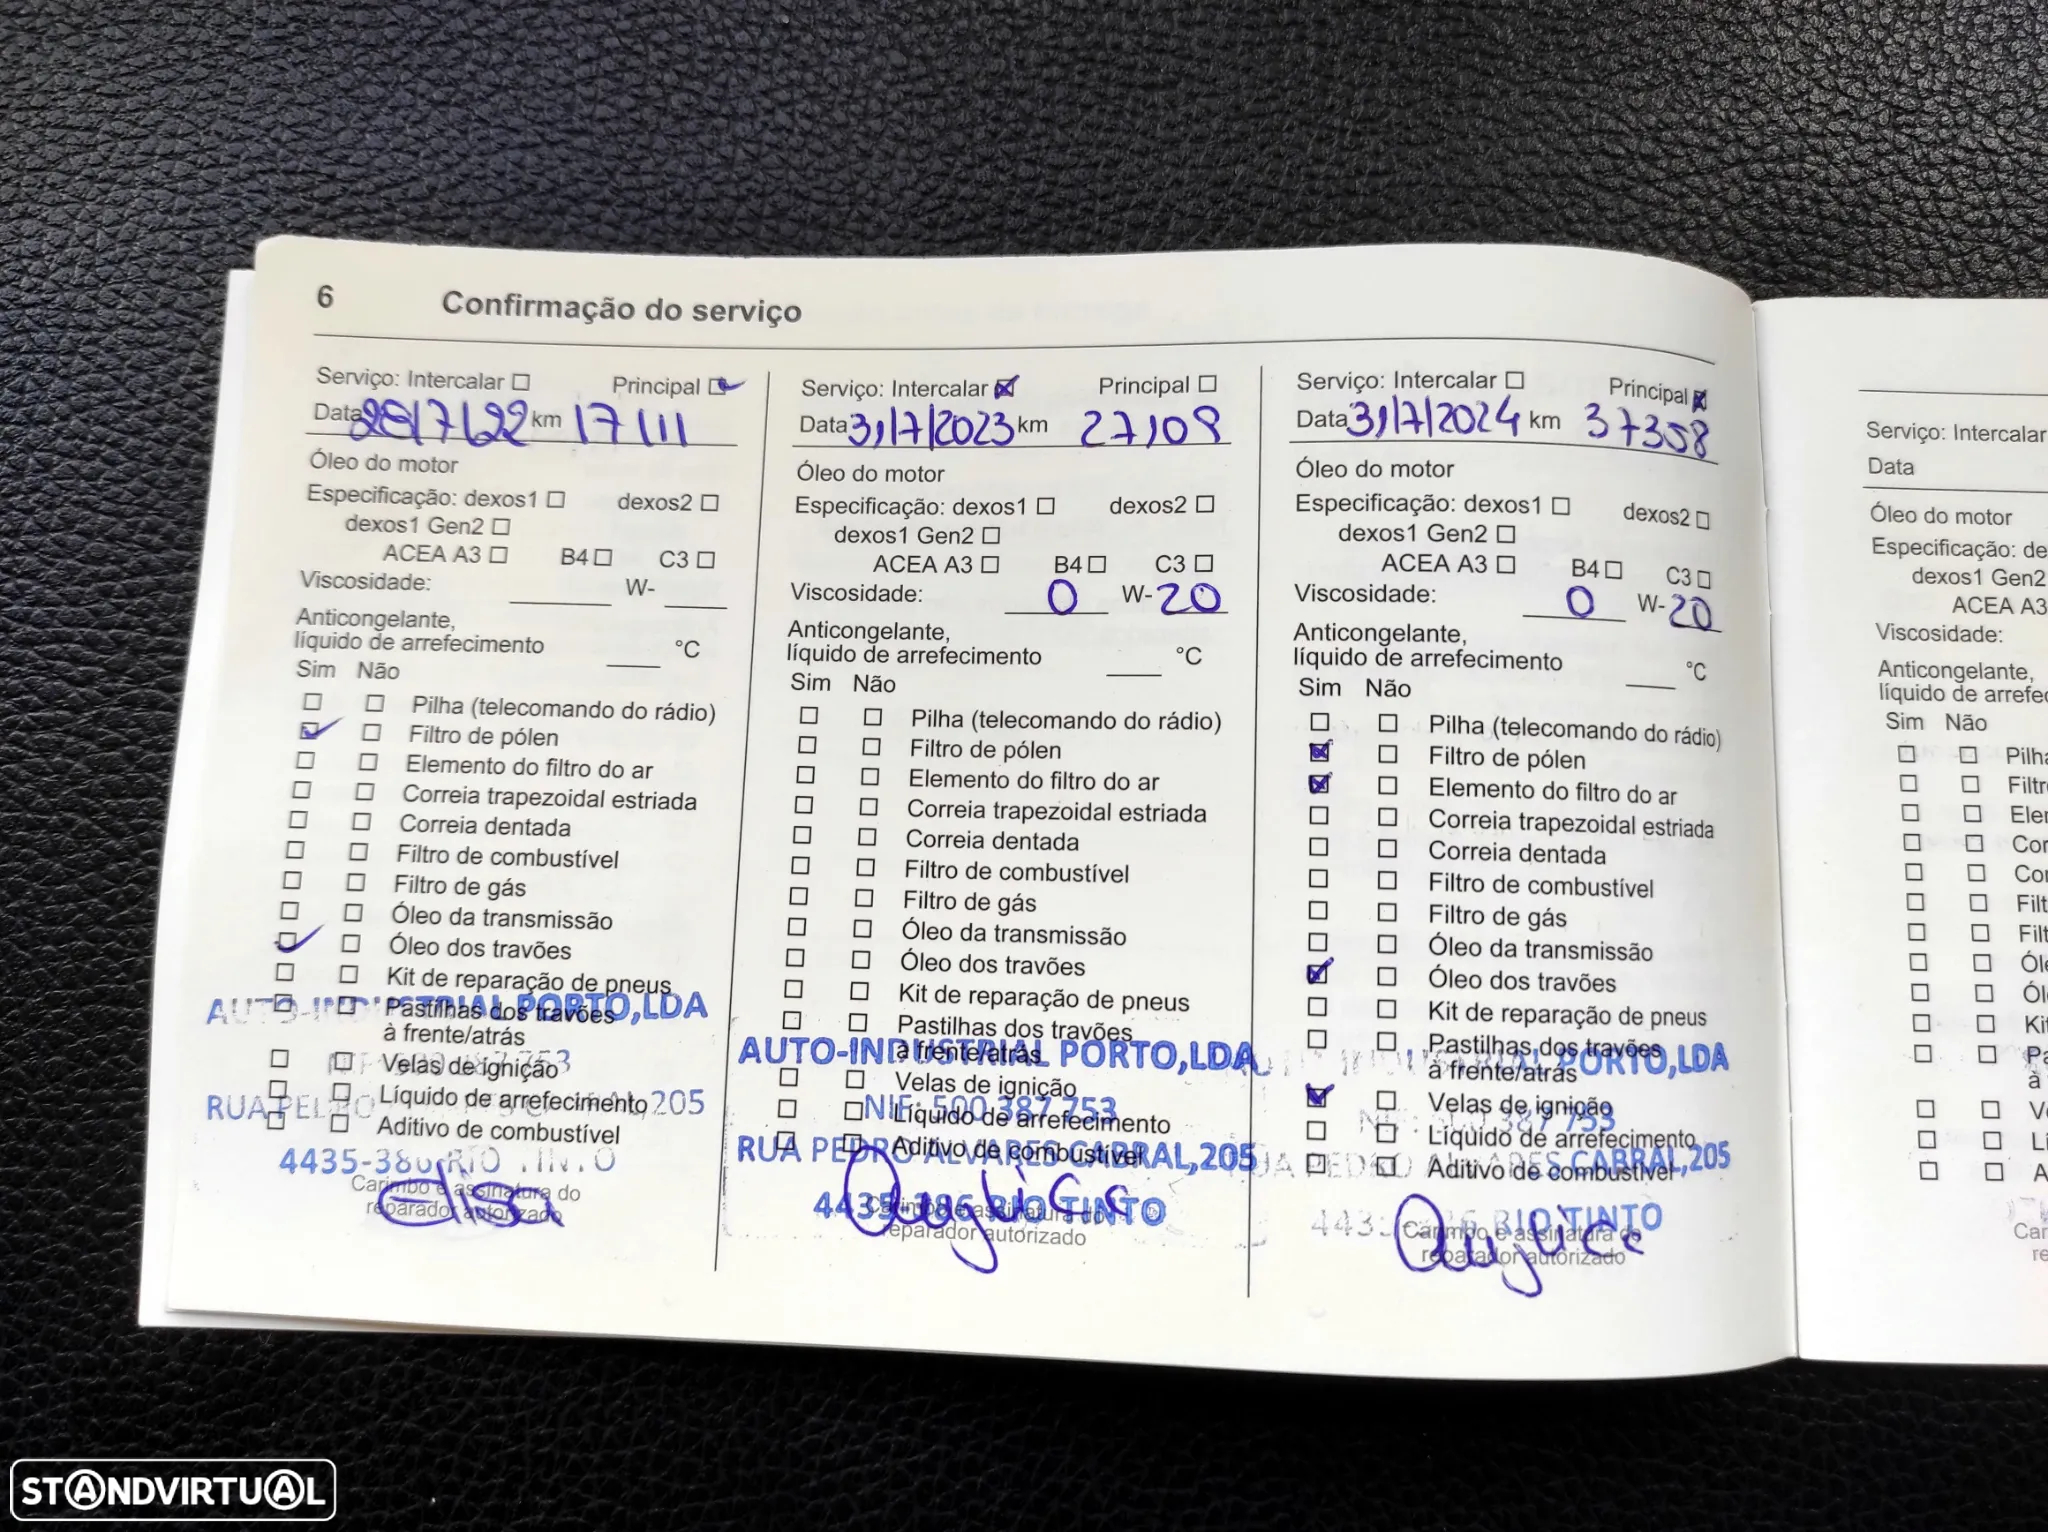 6 Confirmação do serviço
Serviço: Intercalar Principal
Data 28/7/22 km 17111
Óleo do motor
Especificação: dexos1 dexos2
dexos1 Gen2
ACEA A3 B4 C3
Viscosidade: W-
Anticongelante,
líquido de arrefecimento °C
Sim Não
Pilha (telecomando do rádio)
Filtro de pólen
Elemento do filtro do ar
Correia trapezoidal estriada
Correia dentada
Filtro de combustível
Filtro de gás
Óleo da transmissão
Óleo dos travões
Kit de reparação de pneus
AUTO-INDUSTRIAL PORTO,LDA
Pastilhas dos travões
à frente/atrás
Velas de ignição
Líquido de arrefecimento
Aditivo de combustível
4435-386 RIO TINTO
Carimbo e assinatura do
reparador autorizado
Elisa
Serviço: Intercalar Principal
Data 31/7/2023 km 27109
Óleo do motor
Especificação: dexos1 dexos2
dexos1 Gen2
ACEA A3 B4 C3
Viscosidade: 0 W-20
Anticongelante,
líquido de arrefecimento °C
Sim Não
Pilha (telecomando do rádio)
Filtro de pólen
Elemento do filtro do ar
Correia trapezoidal estriada
Correia dentada
Filtro de combustível
Filtro de gás
Óleo da transmissão
Óleo dos travões
Kit de reparação de pneus
Pastilhas dos travões
à frente/atrás
AUTO-INDUSTRIAL PORTO,LDA
Velas de ignição
NIF: 500 387 753
Líquido de arrefecimento
Aditivo de combustível
RUA PEDRO ALVARES CABRAL,205
4435-386 RIO TINTO
Carimbo e assinatura do
reparador autorizado
Serviço: Intercalar Principal
Data 31/7/2024 km 37358
Óleo do motor
Especificação: dexos1 dexos2
dexos1 Gen2
ACEA A3 B4 C3
Viscosidade: 0 W-20
Anticongelante,
líquido de arrefecimento °C
Sim Não
Pilha (telecomando do rádio)
Filtro de pólen
Elemento do filtro do ar
Correia trapezoidal estriada
Correia dentada
Filtro de combustível
Filtro de gás
Óleo da transmissão
Óleo dos travões
Kit de reparação de pneus
Pastilhas dos travões
à frente/atrás
PORTO,LDA
Velas de ignição
Líquido de arrefecimento
Aditivo de combustível
CABRAL,205
RIO TINTO
Carimbo e assinatura do
reparador autorizado
Serviço: Intercalar
Data
Óleo do motor
Especificação: de
dexos1 Gen2
ACEA A3
Viscosidade:
Anticongelante,
líquido de arrefec
Sim Não
Pilha
Filtr
Eler
Cor
Co
Filt
Filt
Óle
Ól
Kit
Pa
à
Ve
Lí
A
Car
re
STANDVIRTUAL